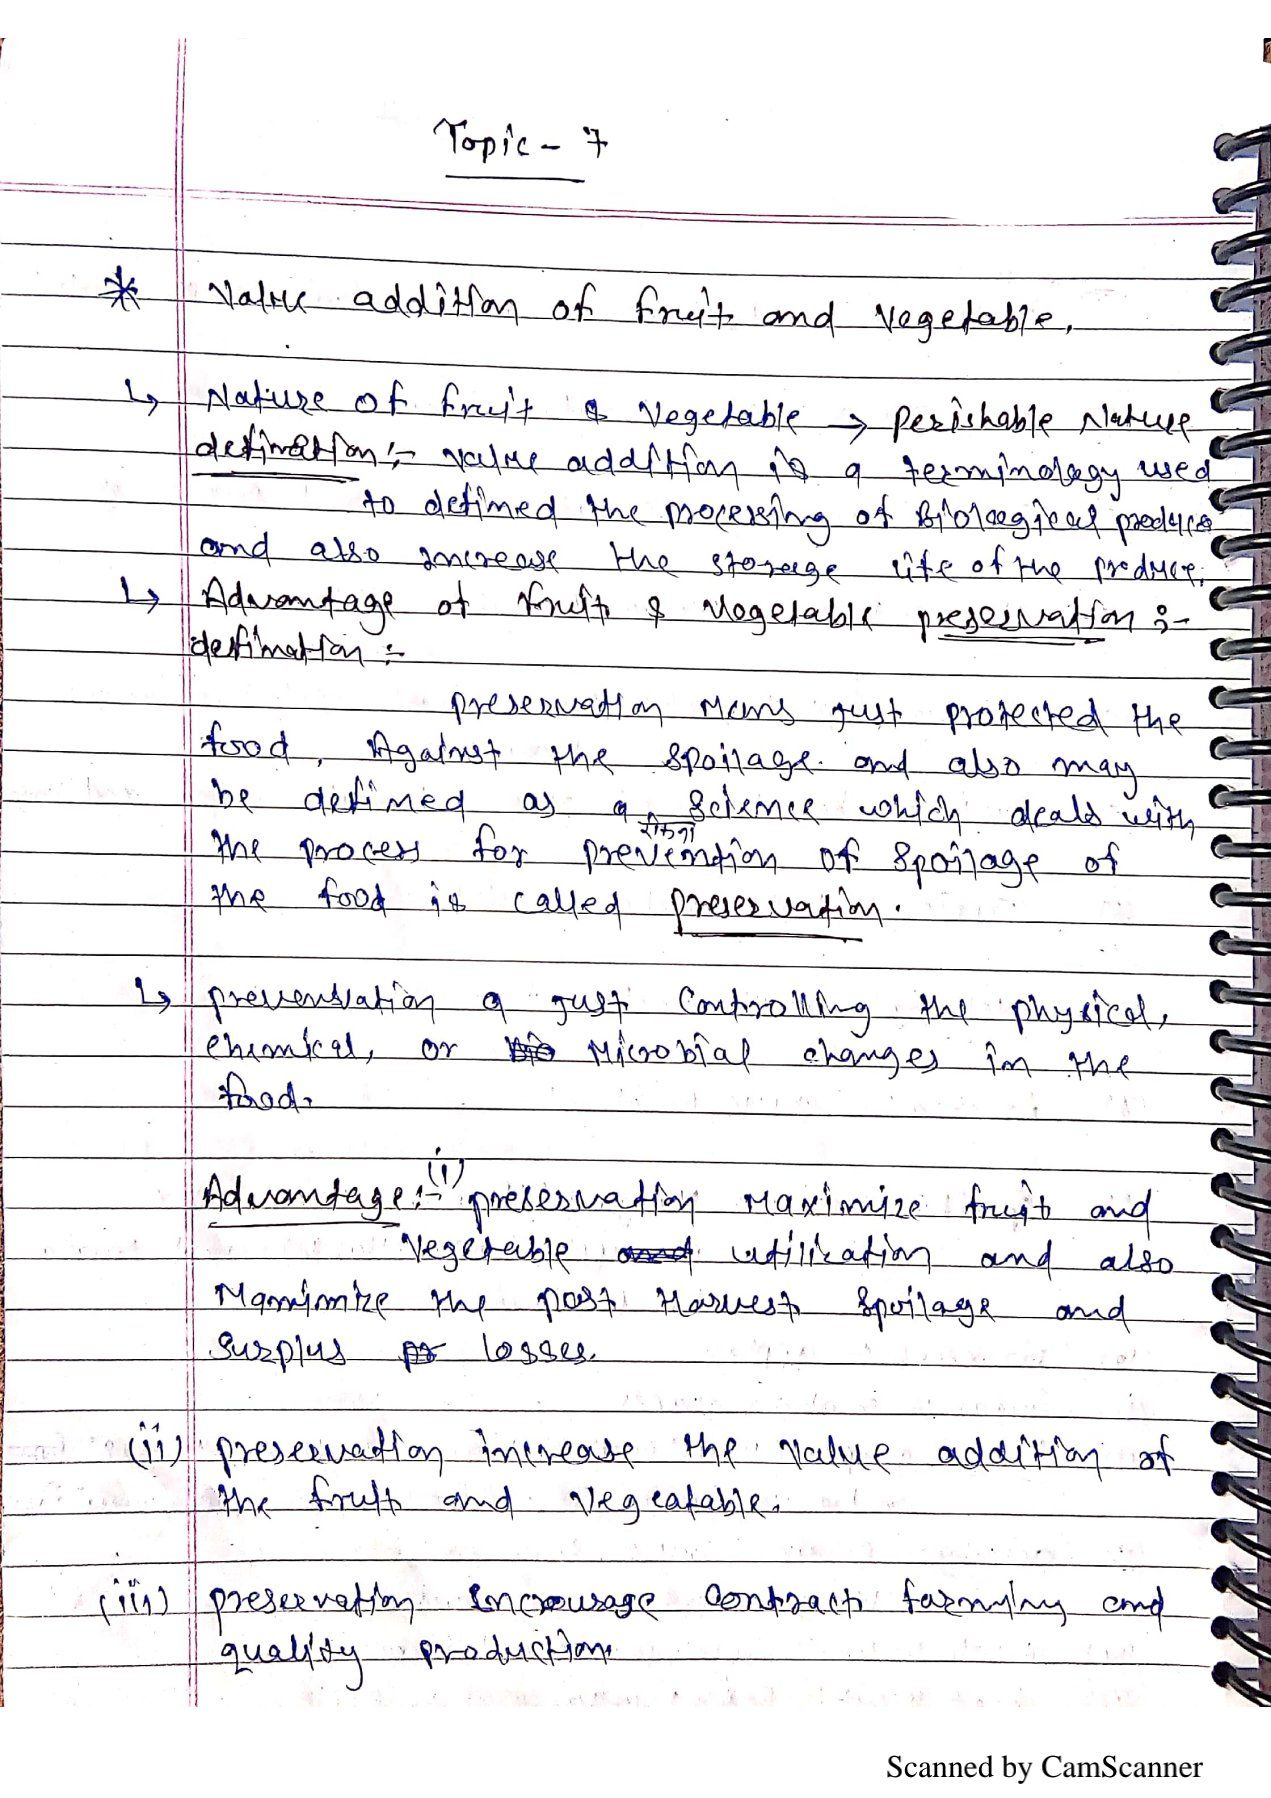 Topic - 7
* Value addition of fruit and vegetable.
↳ Nature of fruit & Vegetable → perishable Nature
defination:- value addition is a terminology used
to defined the processing of Biological produce
and also increase the storage life of the produce.
↳ Advantage of fruit & vegetable preservation :-
defination :-
preservation means just protected the
food, Against the spoilage. and also may
be defined as a science which deals with
रोकना
the process for prevention of spoilage of
the food is called preservation.
↳ a just controlling the physical,
chemical, or Microbial changes in the
food.
Advantage:- (i) preservation maximize fruit and
vegetable utilization and also
the post Harvest spoilage and
surplus losses.
(ii) preservation increase the value addition of
the fruit and vegeatable.
(iii) preservation contract farming and
quality production.
Scanned by CamScanner